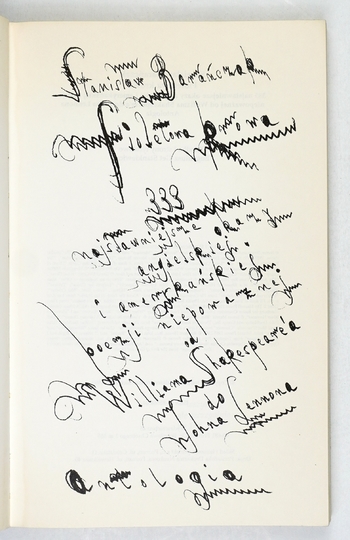 Stanisław Barańczak
Fioletowa krowa
333
najsławniejsze okazy
angielskiej
i amerykańskiej
poezji niepoważnej
od
Williama Shakespeare'a
do
Johna Lennona
Antologia